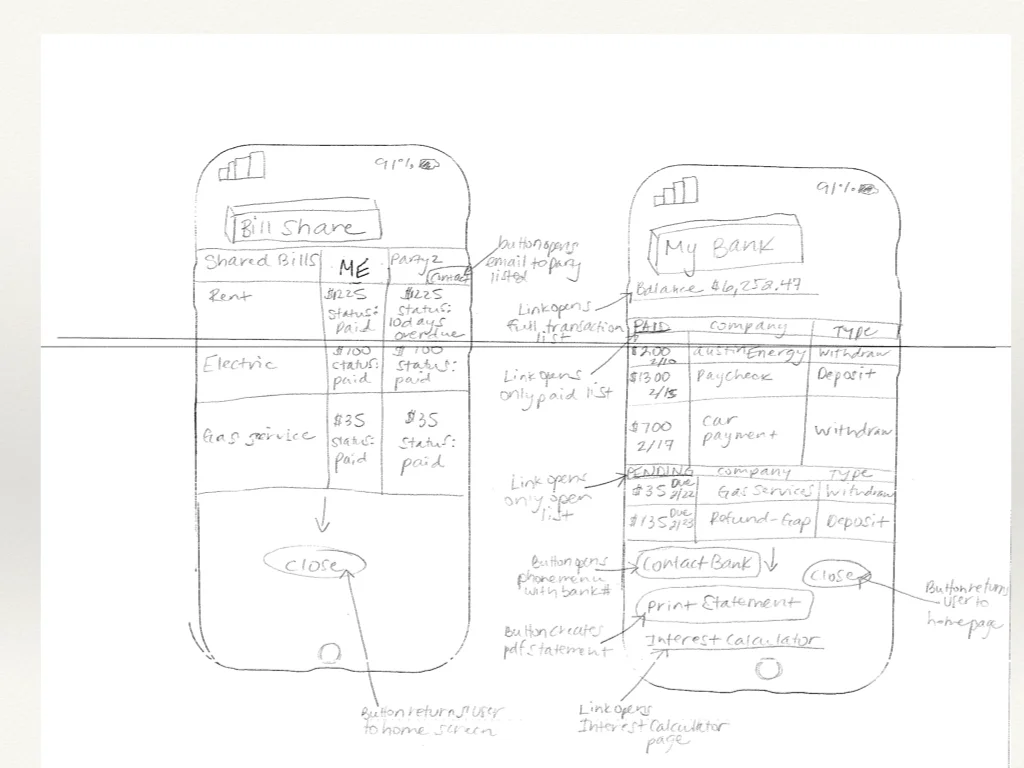 91%
Bill Share
Shared Bills ME Party 2
Contact
Rent $225 $225
status: status:
paid 10 days
overdue
Electric $100 $100
status: status:
paid paid
Gas service $35 $35
status: status:
paid paid
close
button opens
email to party
listed
Button returns user
to home screen
91%
My Bank
Balance $6,258.47
PAID company TYPE
$200 Austin Energy withdraw
2/10
$1300 Paycheck Deposit
2/15
$700 car withdraw
2/17 payment
PENDING company Type
$35 Due Gas Services withdraw
2/22
$135 Due Refund-Gap Deposit
2/23
Contact Bank
close
Print Statement
Interest Calculator
Link opens
full transaction
list
Link opens
only paid list
Link opens
only open
list
Button opens
phone menu
with bank #
Button creates
pdf statement
Link opens
Interest Calculator
page
Button returns
user to
home page